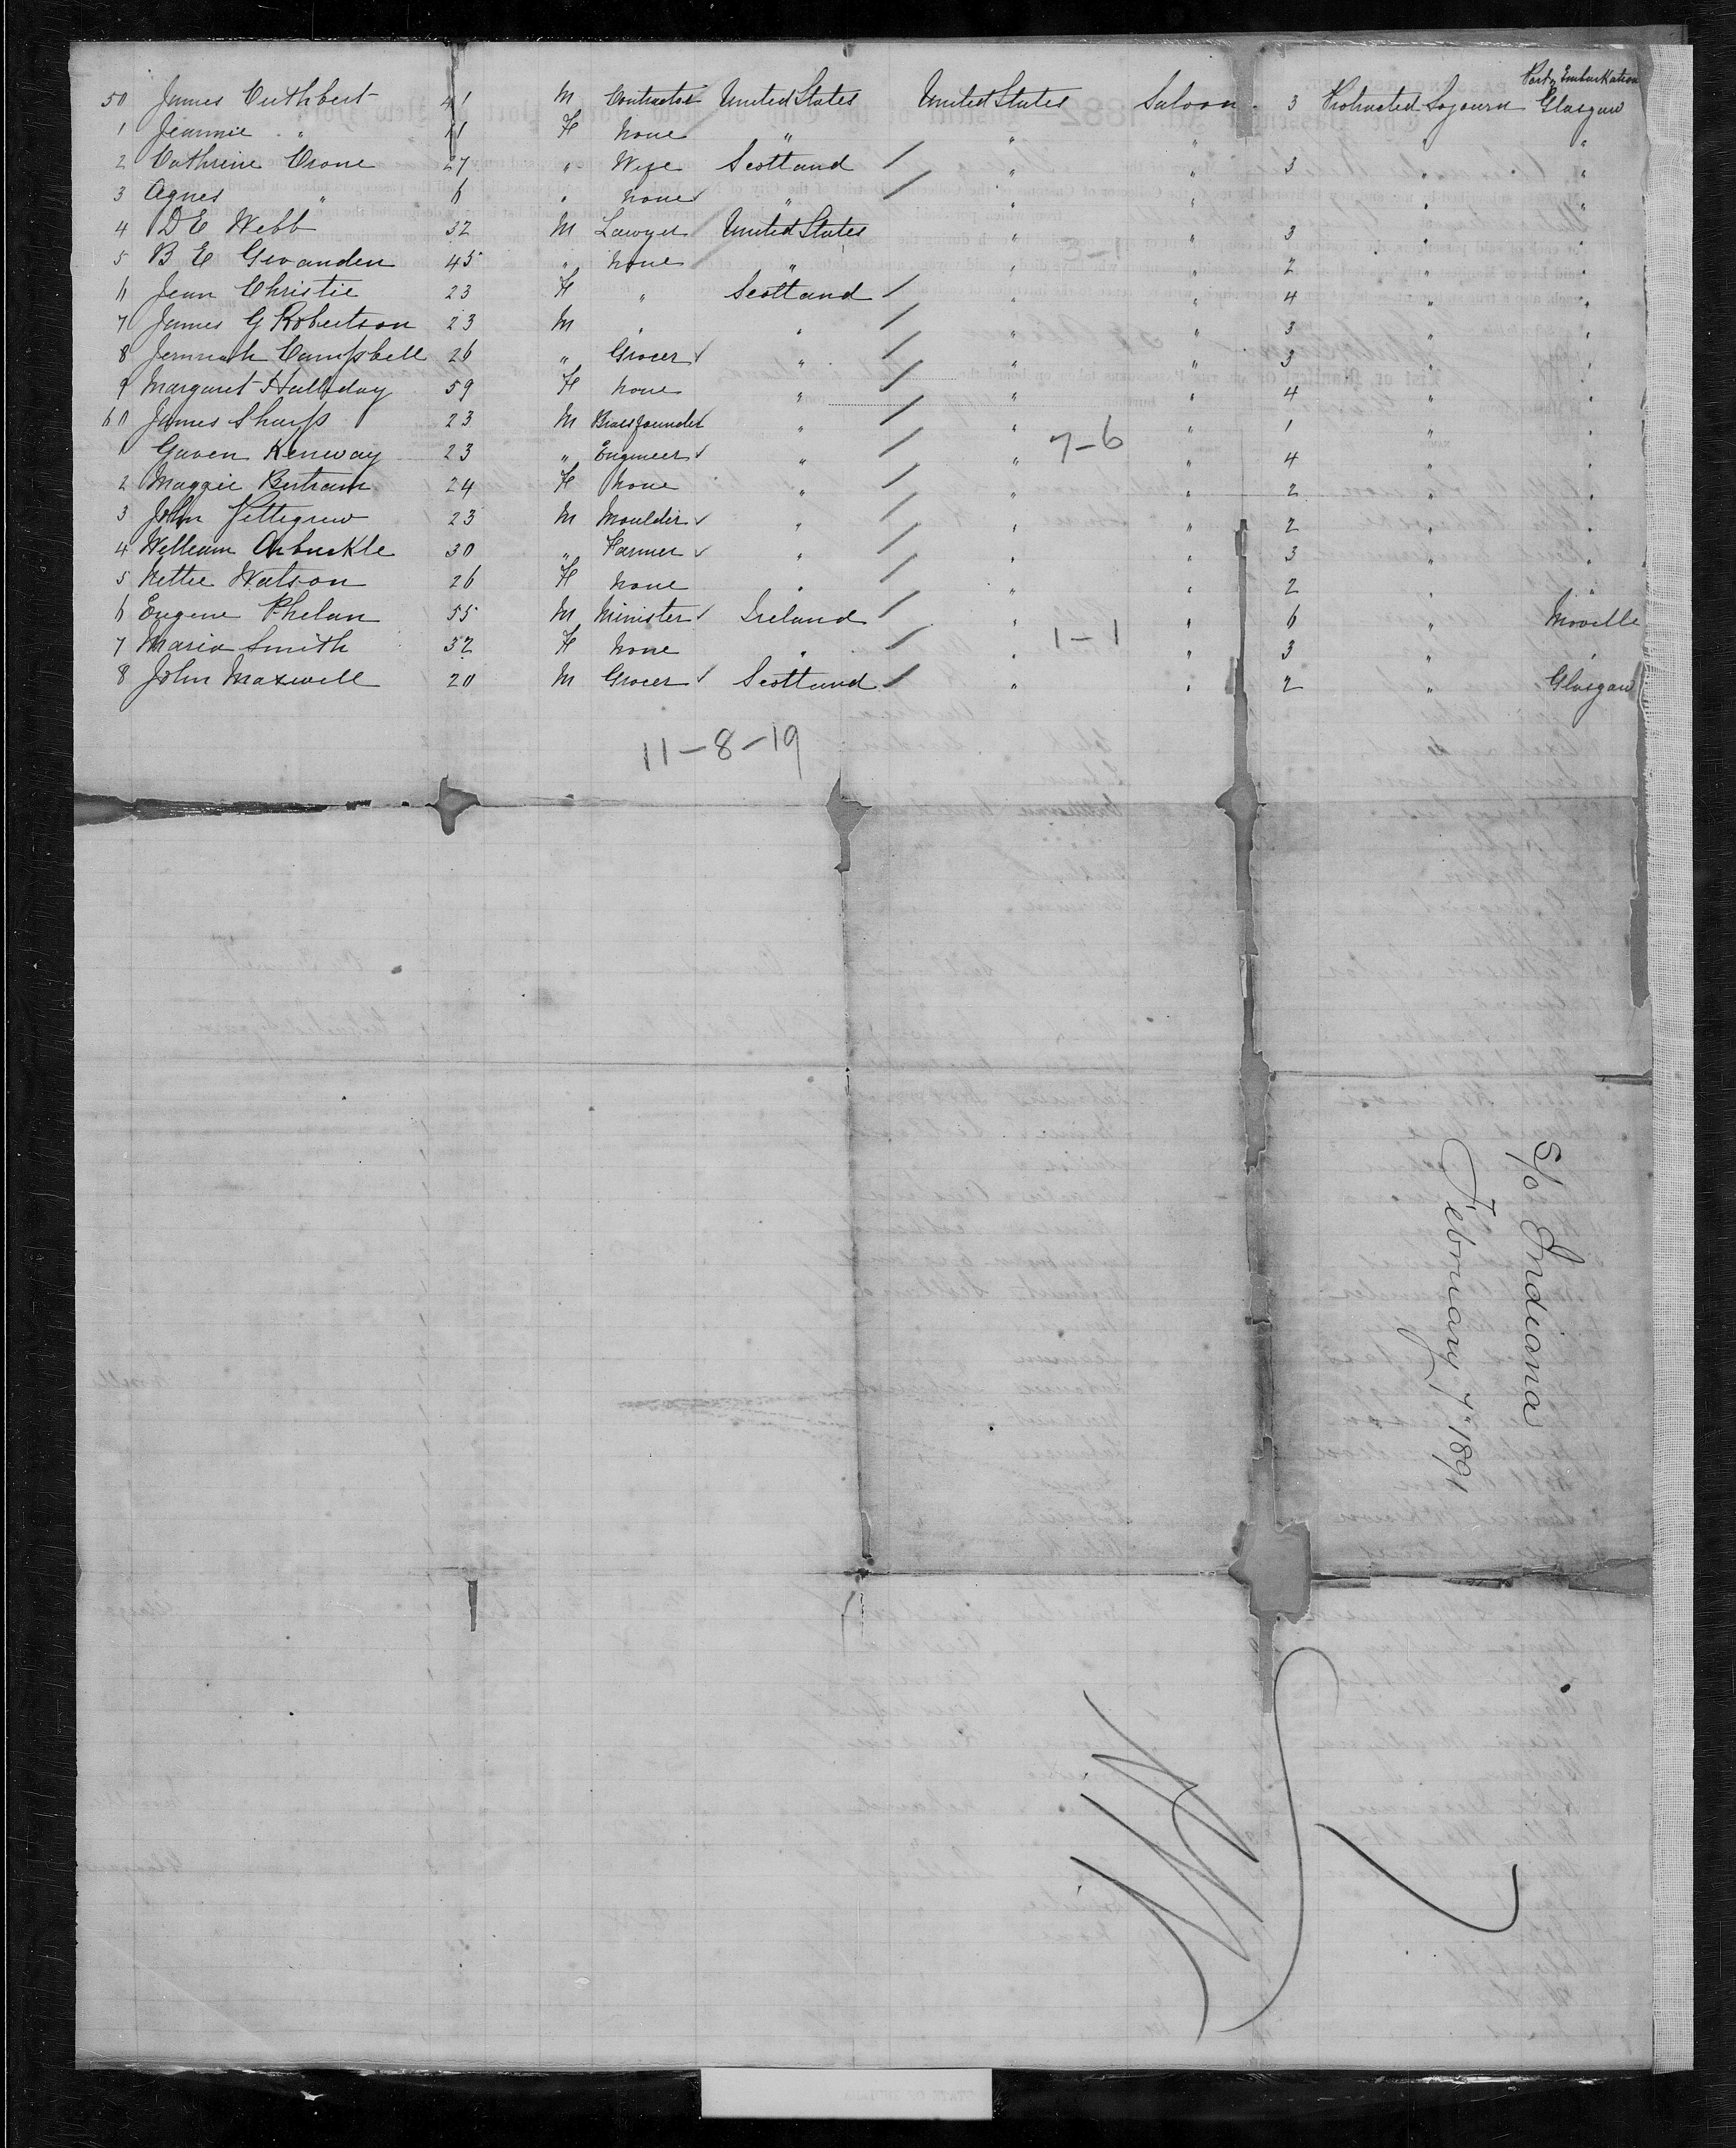 Port of Embarkation
50 James Cuthbert 41 M Contractor United States United States Saloon 3 Protracted Sojourn Glasgow
1 Jeannie " 11 F None " " " " "
2 Cathrine Crone 27 " Wife Scotland / " " 3 " "
3 Agnes " 6 " None " / " " " "
4 D E Webb 32 M Lawyer United States " " 3 " "
5 B E Gevanden 45 " None " " " 2 " "
6 Jean Christie 23 F " Scotland / " " 4 " "
7 James G Robertson 23 M " " / " " 3 " "
8 Jermiah Campbell 26 " Grocer " / " " 3 " "
9 Margaret Halliday 59 F None " / " " 4 " "
60 James Sharp 23 M Brassfounder " / " " 1 " "
1 Gaven Kenway 23 " Engineer " / " 7-6 " 4 " "
2 Maggie Bertram 24 F None " / " " 2 " "
3 John Pettegrew 23 M Moulder " / " " 2 " "
4 William Arbuckle 30 " Farmer " / " " 3 " "
5 Nettie Watson 26 F None " / " " 2 " "
6 Eugene Phelan 55 M Minister Ireland / " " 6 " Moville
7 Maria Smith 32 F None " / " 1-1 " 3 " "
8 John Maxwell 20 M Grocer Scotland / " " 2 " Glasgow
11-8-19
S/o Indiana
February 7" 1891